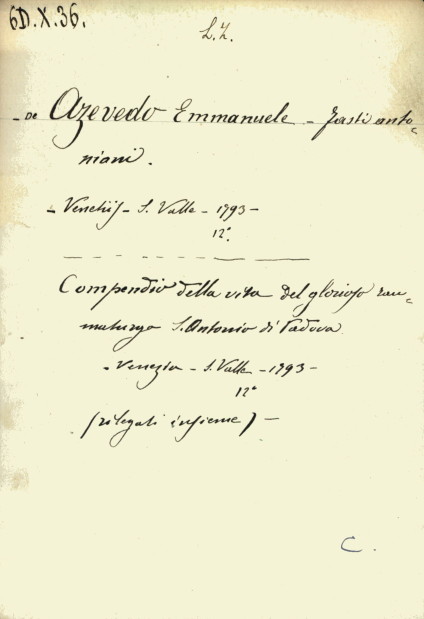 6D.X.36.
L.Z.
- De Azevedo Emmanuele - Fasti anto=
niani.
- Venetiis - S. Valle - 1793 -
12°.
Compendio della vita del glorioso tau=
maturgo S. Antonio di Padova
- Venezia - S. Valle - 1793 -
12°
(rilegati insieme) -
C.